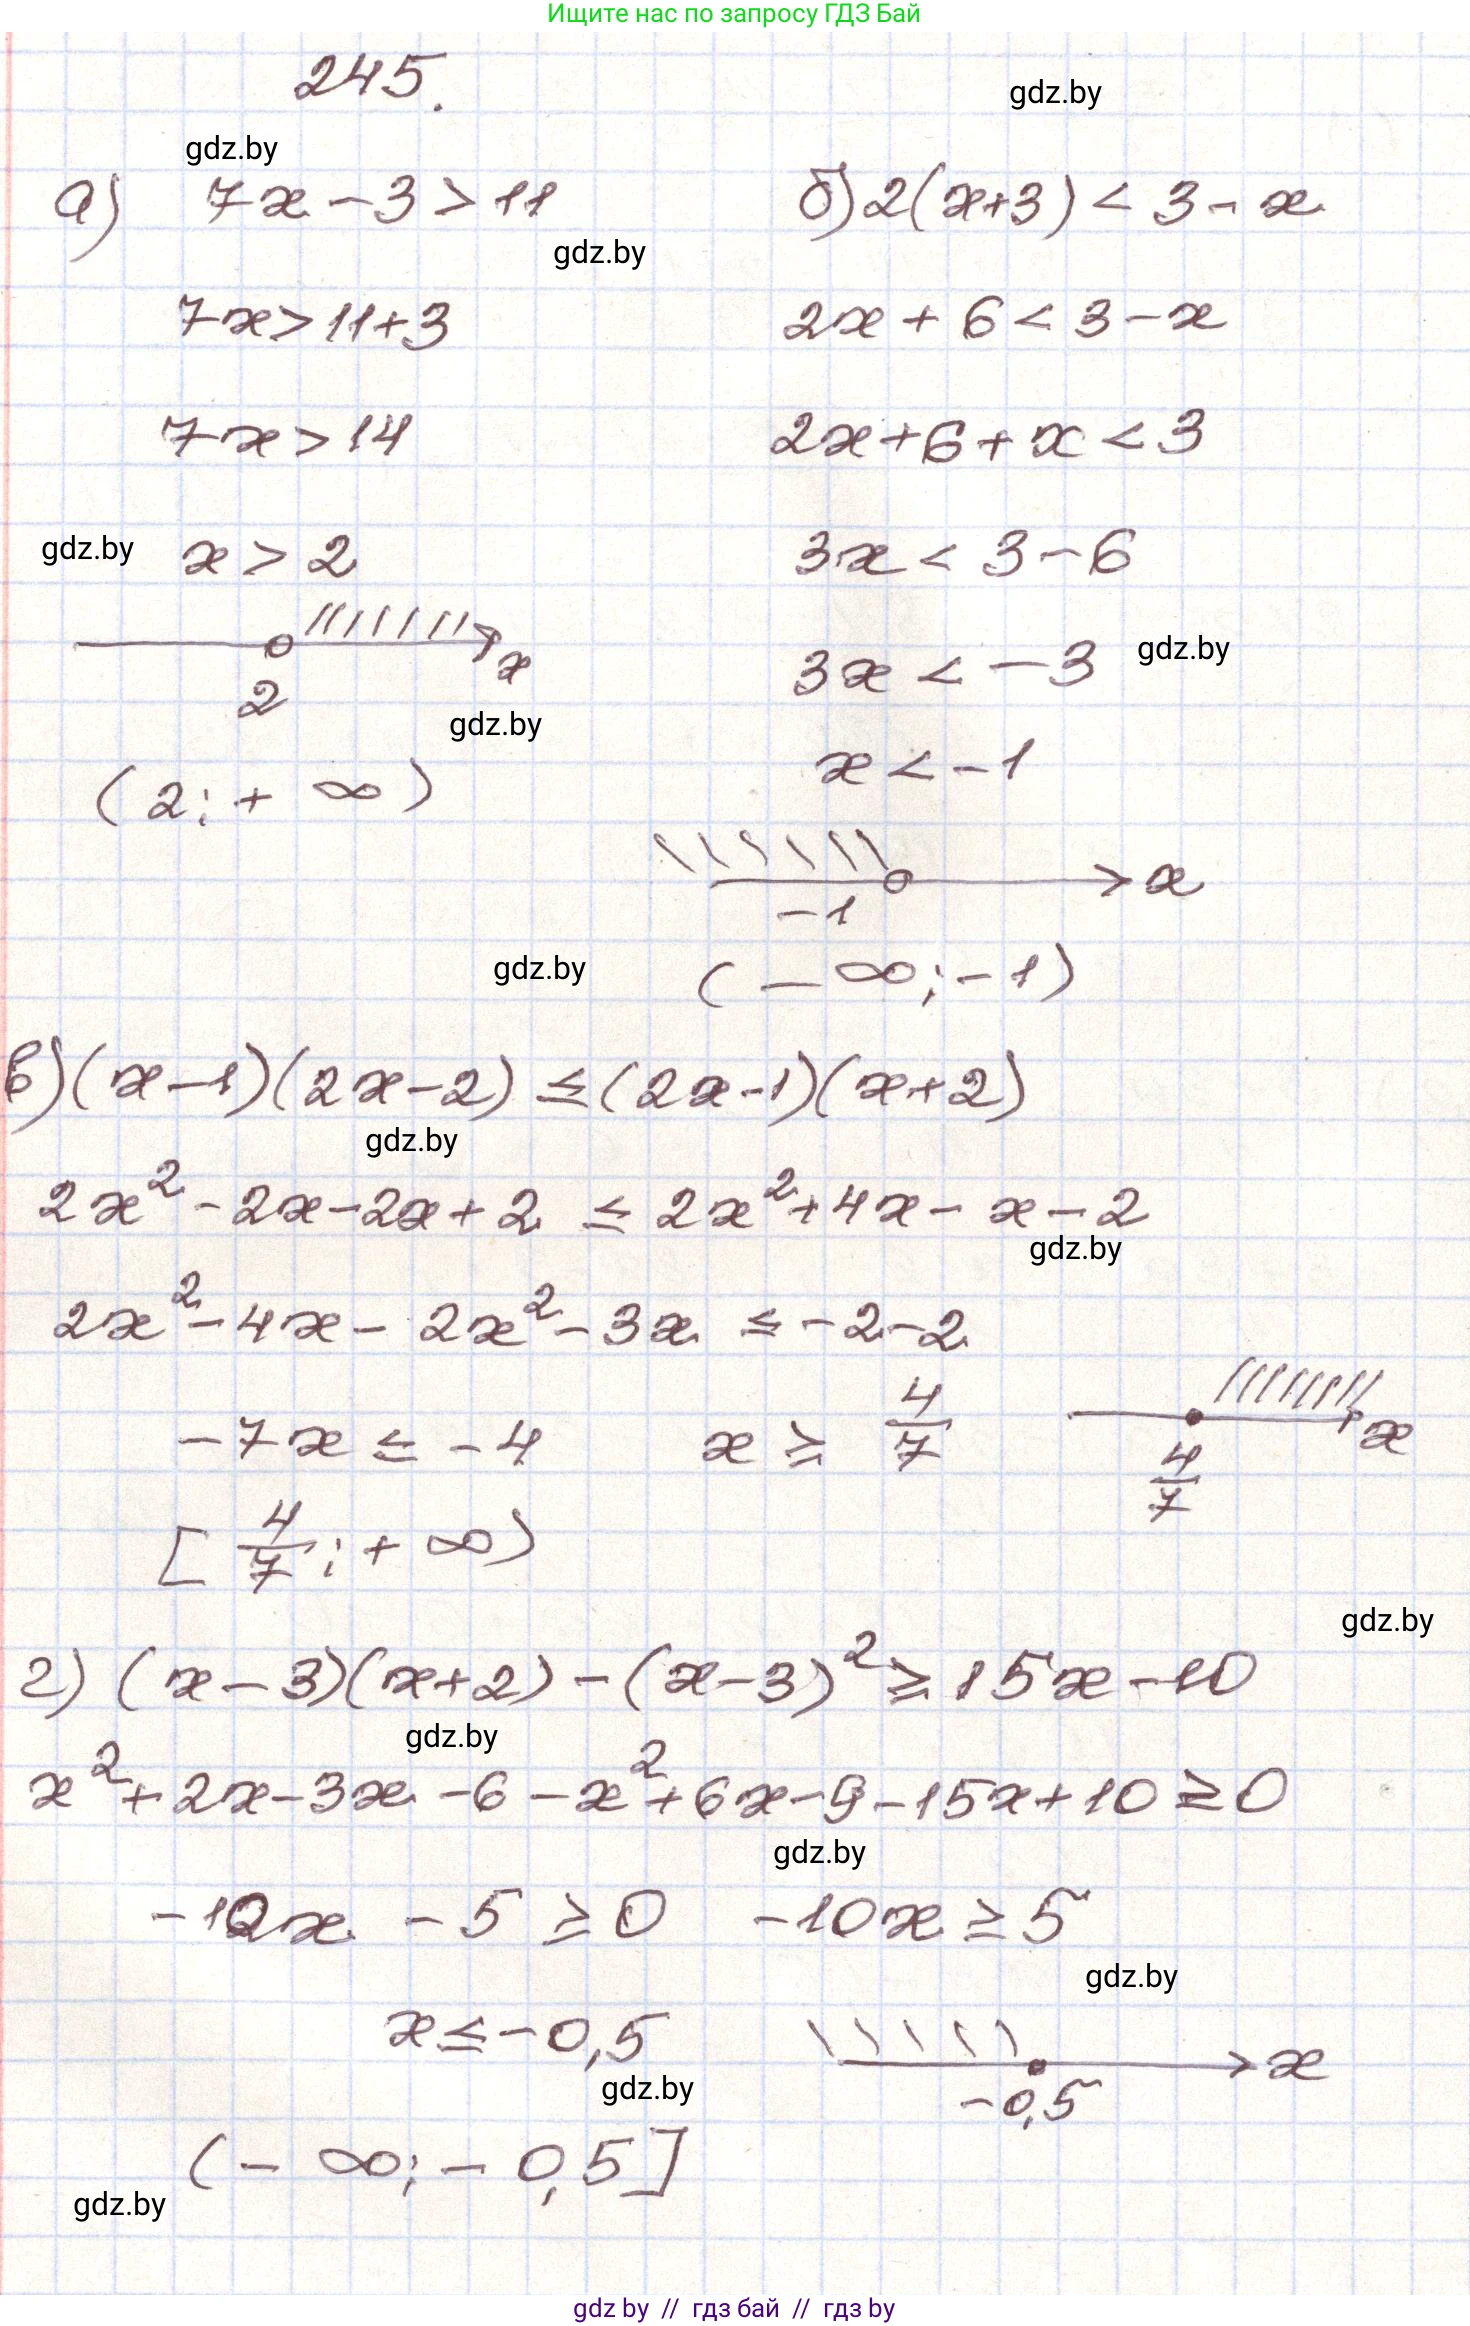 Ищите нас по запросу ГДЗ Бай
245.
gdz.by
gdz.by
а) 7x - 3 > 11
б) 2(x+3) < 3 - x
gdz.by
7x > 11+3
2x + 6 < 3 - x
7x > 14
2x + 6 + x < 3
gdz.by
x > 2
3x < 3 - 6
x
2
3x < -3
gdz.by
gdz.by
(2; + ∞)
x < -1
x
-1
gdz.by
(- ∞; -1)
в) (x-1)(2x-2) ≤ (2x-1)(x+2)
gdz.by
2x² - 2x - 2x + 2 ≤ 2x² + 4x - x - 2
gdz.by
2x² - 4x - 2x² - 3x ≤ -2 - 2
-7x ≤ -4
x ≥ 4/7
x
4/7
[4/7; + ∞)
gdz.by
г) (x-3)(x+2) - (x-3)² ≥ 15x - 10
gdz.by
x² + 2x - 3x - 6 - x² + 6x - 9 - 15x + 10 ≥ 0
gdz.by
-10x - 5 ≥ 0
-10x ≥ 5
gdz.by
x ≤ -0,5
x
-0,5
gdz.by
(- ∞; - 0,5]
gdz.by
gdz by // гдз бай // гдз by